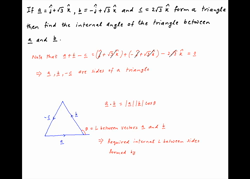 If a = î+√3 k̂, b = -î+√3 k̂ and c = 2√3 k̂ form a triangle
then find the internal angle of the triangle between
a and b.
Note that a + b - c = (î+√3 k̂) + (-î+√3 k̂) - 2√3 k̂ = 0
⇒ a, b, -c are sides of a triangle
a . b = |a| |b| cosθ
-c
b
θ = ∠ between vectors a and b
a
⇒ Required internal ∠ between sides
formed by